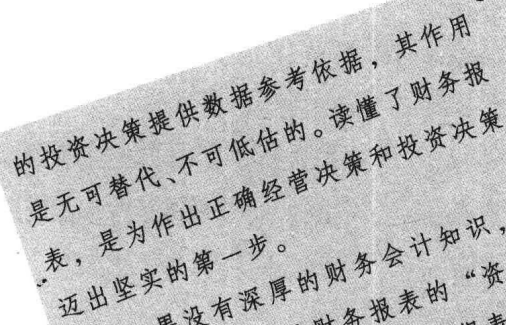 的投资决策提供数据参考依据，其作用
是无可替代、不可低估的。读懂了财务报
表，是为作出正确经营决策和投资决策
迈出坚实的第一步。
果没有深厚的财务会计知识，
财务报表的“资